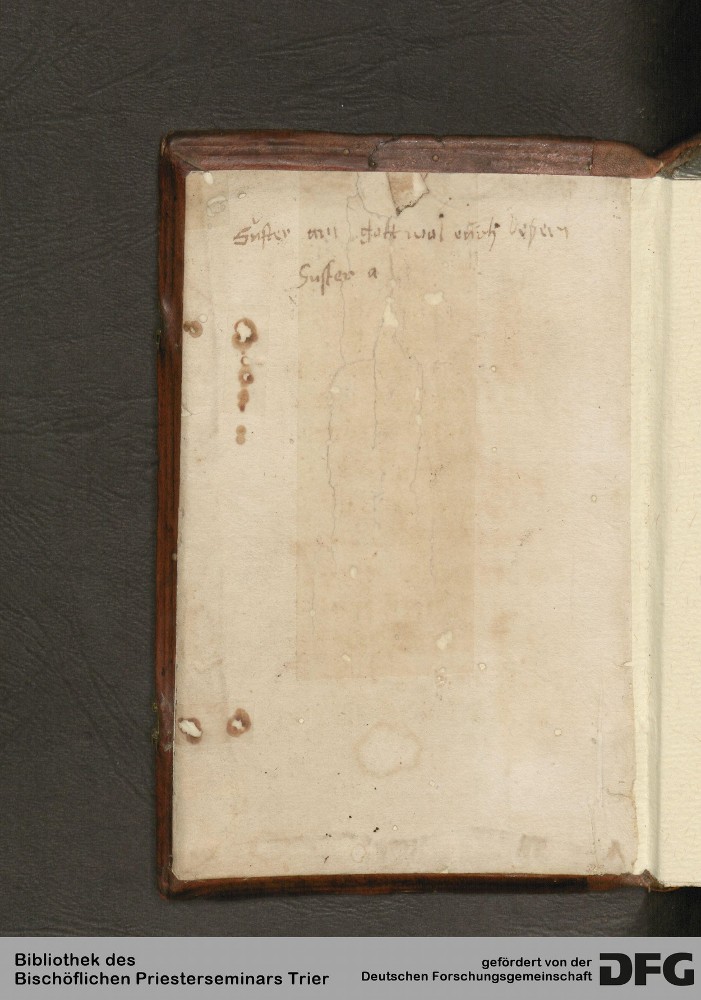 Suster an gott wol
Suster a
Bibliothek des
Bischöflichen Priesterseminars Trier
gefördert von der
Deutschen Forschungsgemeinschaft
DFG